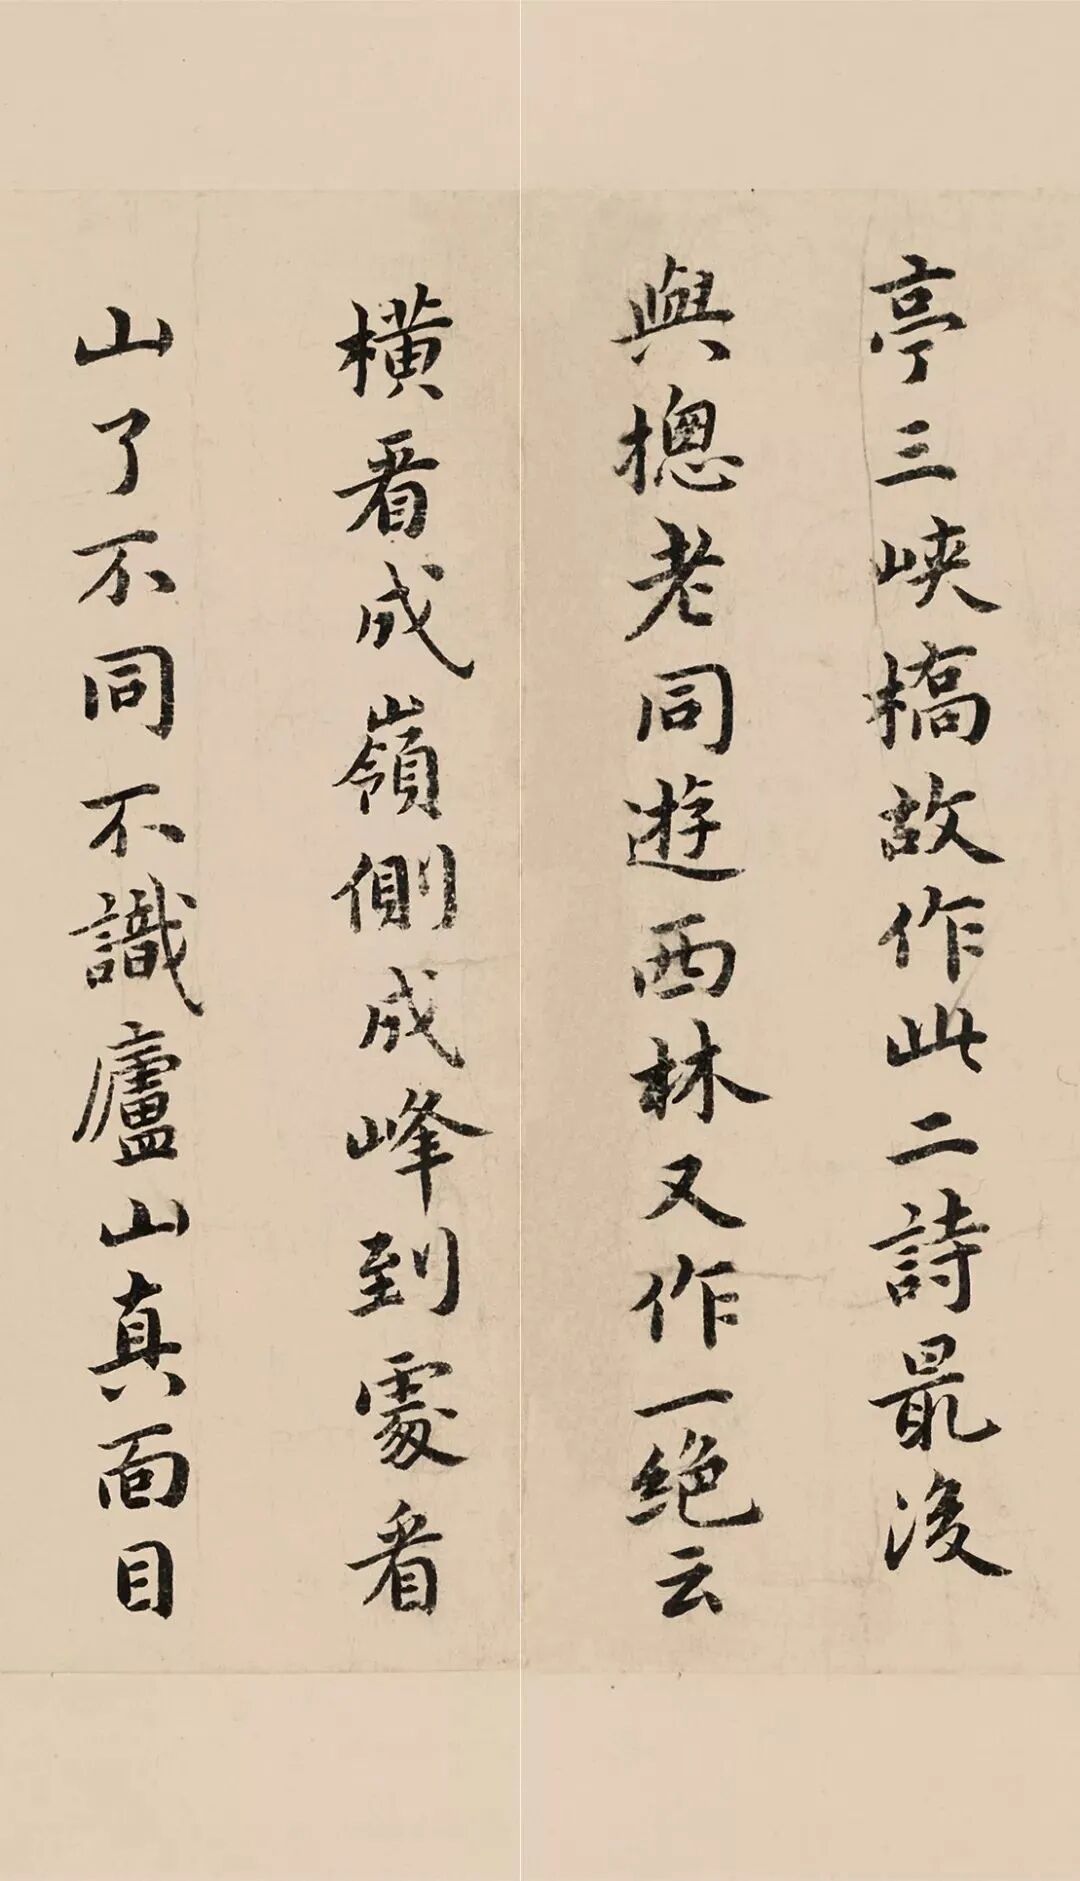 亭三峽橋故作此二詩最後
與揔老同遊西林又作一絕云
橫看成嶺側成峰到處看
山了不同不識廬山真面目